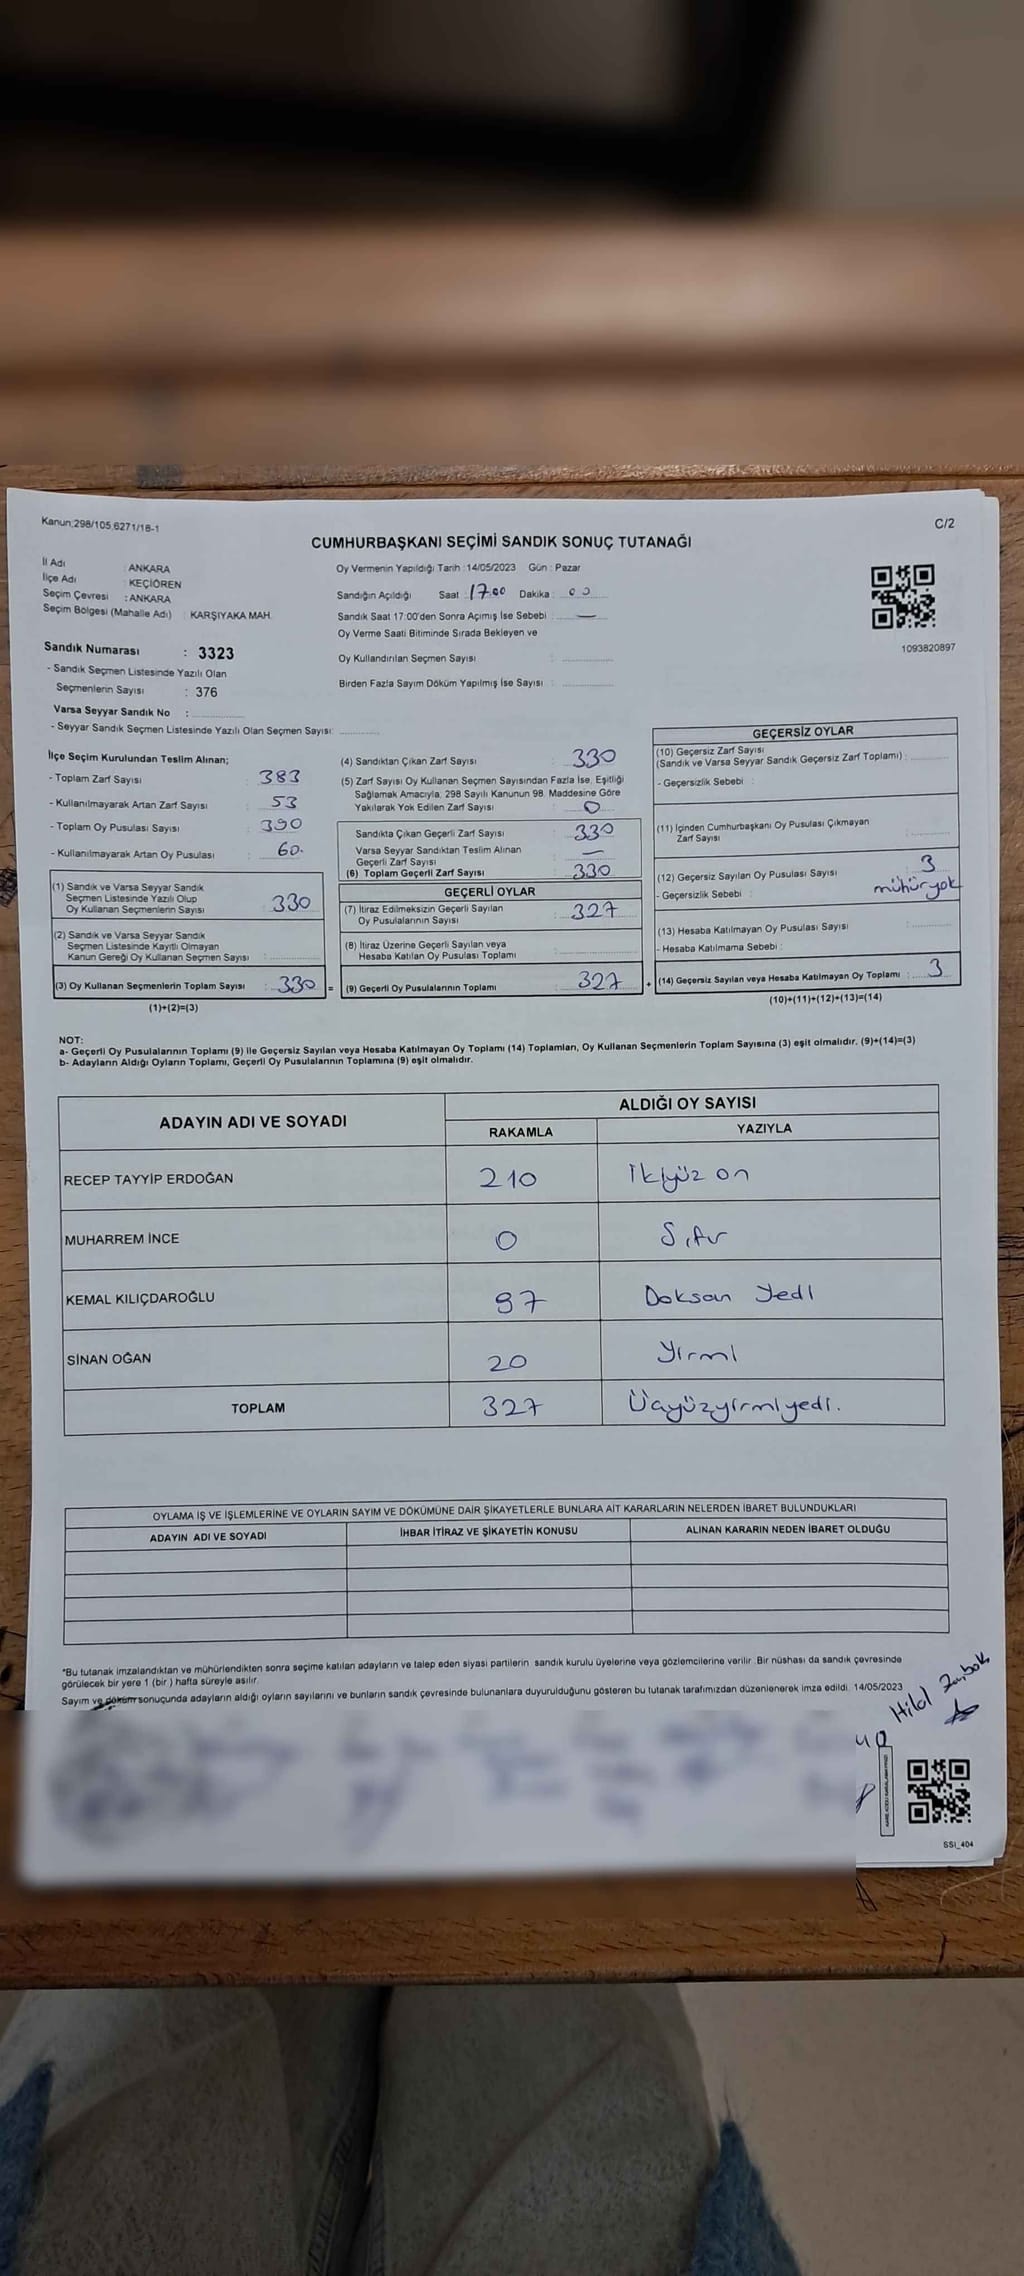 Kanun;298/105,6271/18-1
C/2
CUMHURBAŞKANI SEÇİMİ SANDIK SONUÇ TUTANAĞI
İl Adı : ANKARA
İlçe Adı : KEÇİÖREN
Seçim Çevresi : ANKARA
Seçim Bölgesi (Mahalle Adı) : KARŞIYAKA MAH.
Oy Vermenin Yapıldığı Tarih :14/05/2023 Gün : Pazar
Sandığın Açıldığı Saat : 17:00 Dakika : 00
Sandık Saat 17:00'den Sonra Açımış İse Sebebi : —
Oy Verme Saati Bitiminde Sırada Bekleyen ve
Oy Kullandırılan Seçmen Sayısı :
Birden Fazla Sayım Döküm Yapılmış İse Sayısı :
1093820897
Sandık Numarası : 3323
- Sandık Seçmen Listesinde Yazılı Olan
Seçmenlerin Sayısı : 376
Varsa Seyyar Sandık No :
- Seyyar Sandık Seçmen Listesinde Yazılı Olan Seçmen Sayısı:
İlçe Seçim Kurulundan Teslim Alınan;
- Toplam Zarf Sayısı : 383
- Kullanılmayarak Artan Zarf Sayısı : 53
- Toplam Oy Pusulası Sayısı : 390
- Kullanılmayarak Artan Oy Pusulası : 60.
(1) Sandık ve Varsa Seyyar Sandık
Seçmen Listesinde Yazılı Olup
Oy Kullanan Seçmenlerin Sayısı : 330
(2) Sandık ve Varsa Seyyar Sandık
Seçmen Listesinde Kayıtlı Olmayan
Kanun Gereği Oy Kullanan Seçmen Sayısı :
(3) Oy Kullanan Seçmenlerin Toplam Sayısı : 330 =
(1)+(2)=(3)
(4) Sandıktan Çıkan Zarf Sayısı : 330
(5) Zarf Sayısı Oy Kullanan Seçmen Sayısından Fazla İse, Eşitliği
Sağlamak Amacıyla, 298 Sayılı Kanunun 98. Maddesine Göre
Yakılarak Yok Edilen Zarf Sayısı : 0
Sandıkta Çıkan Geçerli Zarf Sayısı : 330
Varsa Seyyar Sandıktan Teslim Alınan
Geçerli Zarf Sayısı : —
(6) Toplam Geçerli Zarf Sayısı : 330
GEÇERLİ OYLAR
(7) İtiraz Edilmeksizin Geçerli Sayılan
Oy Pusulalarının Sayısı : 327
(8) İtiraz Üzerine Geçerli Sayılan veya
Hesaba Katılan Oy Pusulası Toplamı :
(9) Geçerli Oy Pusulalarının Toplamı : 327 +
GEÇERSİZ OYLAR
(10) Geçersiz Zarf Sayısı
(Sandık ve Varsa Seyyar Sandık Geçersiz Zarf Toplamı) :
- Geçersizlik Sebebi :
(11) İçinden Cumhurbaşkanı Oy Pusulası Çıkmayan
Zarf Sayısı :
(12) Geçersiz Sayılan Oy Pusulası Sayısı : 3
- Geçersizlik Sebebi : mühür yok
(13) Hesaba Katılmayan Oy Pusulası Sayısı :
- Hesaba Katılmama Sebebi :
(14) Geçersiz Sayılan veya Hesaba Katılmayan Oy Toplamı : 3
(10)+(11)+(12)+(13)=(14)
NOT:
a- Geçerli Oy Pusulalarının Toplamı (9) ile Geçersiz Sayılan veya Hesaba Katılmayan Oy Toplamı (14) Toplamları, Oy Kullanan Seçmenlerin Toplam Sayısına (3) eşit olmalıdır. (9)+(14)=(3)
b- Adayların Aldığı Oyların Toplamı, Geçerli Oy Pusulalarının Toplamına (9) eşit olmalıdır.
ADAYIN ADI VE SOYADI
ALDIĞI OY SAYISI
RAKAMLA YAZIYLA
RECEP TAYYİP ERDOĞAN 210 İkiyüz on
MUHARREM İNCE 0 Sıfır
KEMAL KILIÇDAROĞLU 97 Doksan Yedi
SİNAN OĞAN 20 Yirmi
TOPLAM 327 Üçyüzyirmiyedi.
OYLAMA İŞ VE İŞLEMLERİNE VE OYLARIN SAYIM VE DÖKÜMÜNE DAİR ŞİKAYETLERLE BUNLARA AİT KARARLARIN NELERDEN İBARET BULUNDUKLARI
ADAYIN ADI VE SOYADI İHBAR İTİRAZ VE ŞİKAYETİN KONUSU ALINAN KARARIN NEDEN İBARET OLDUĞU
*Bu tutanak imzalandıktan ve mühürlendikten sonra seçime katılan adayların ve talep eden siyasi partilerin sandık kurulu üyelerine veya gözlemcilerine verilir. Bir nüshası da sandık çevresinde
görülecek bir yere 1 (bir ) hafta süreyle asılır.
Sayım ve döküm sonuçunda adayların aldığı oyların sayılarını ve bunların sandık çevresinde bulunanlara duyurulduğunu gösteren bu tutanak tarafımızdan düzenlenerek imza edildi. 14/05/2023
SSİ_404